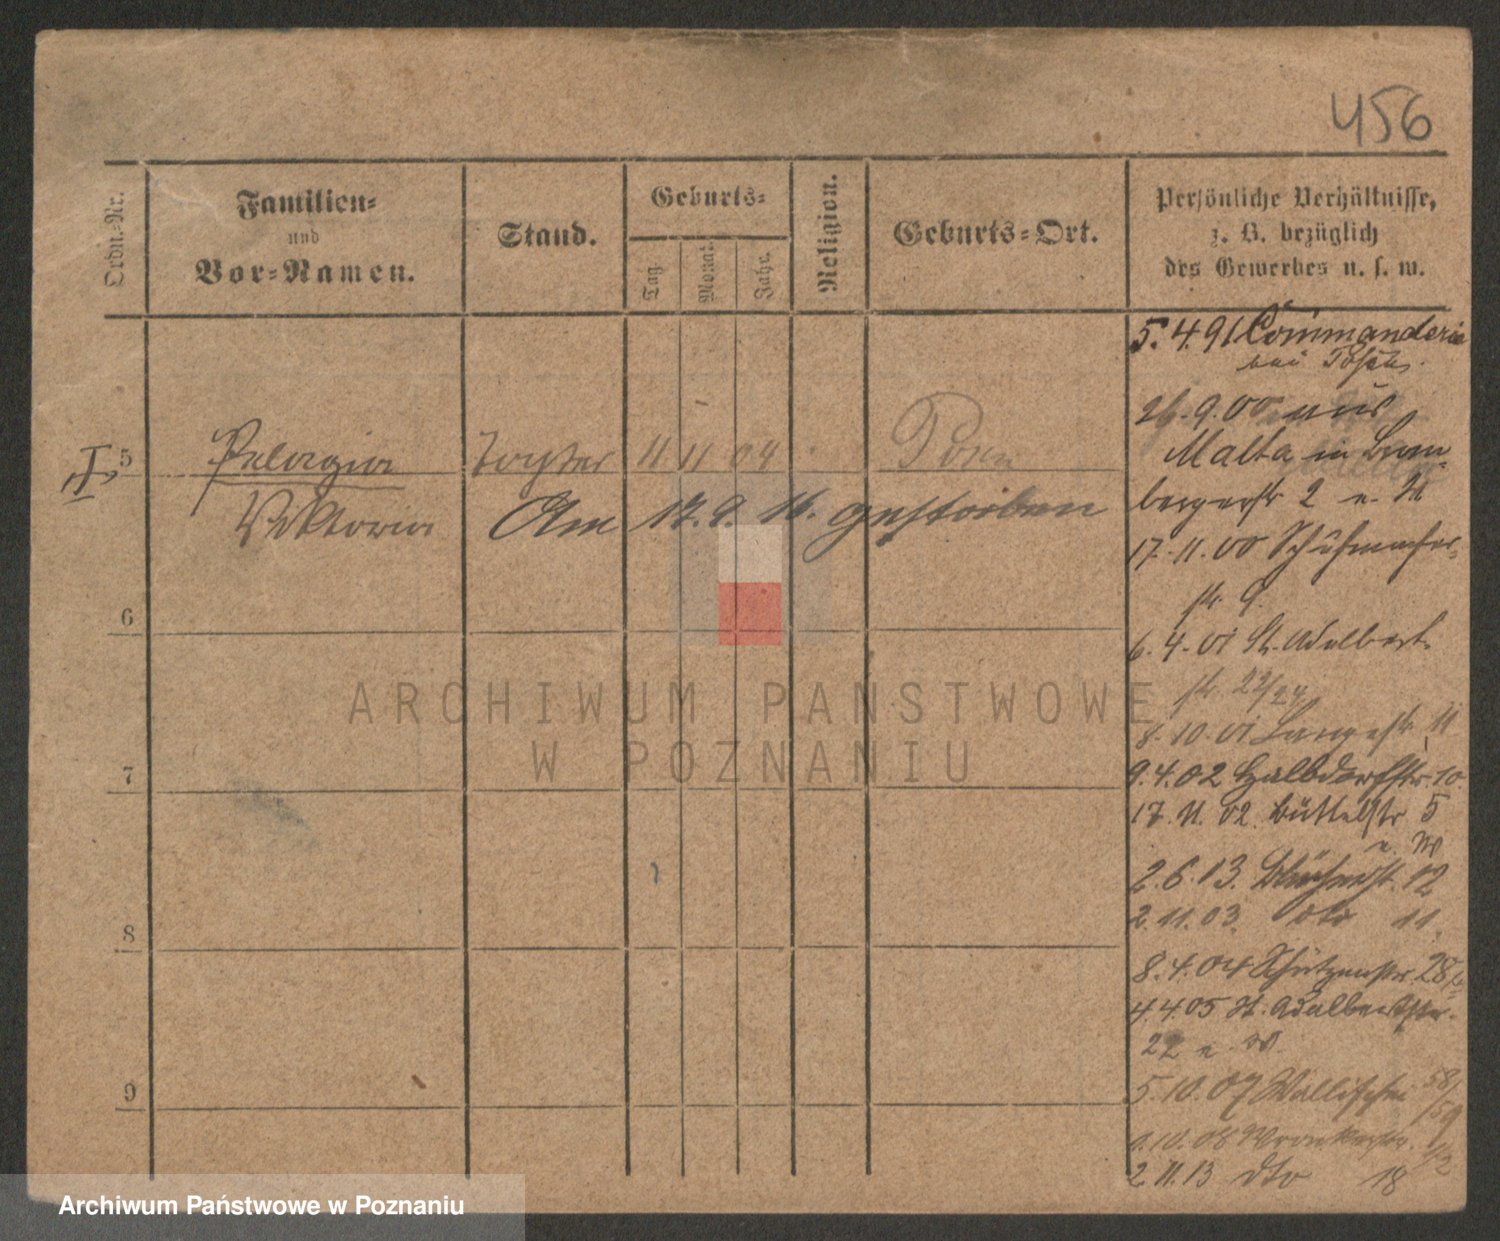 456
Ordn.-Nr.
Familien-
und
Vor-Namen.
Stand.
Geburts-
Tag.
Monat.
Jahr.
Religion.
Geburts-Ort.
Persönliche Verhältnisse,
z. B. bezüglich
des Gewerbes u. s. w.
5. 4. 91 Commanderie
bei Posen.
26. 9. 00 aus
Malta in Brom-
bergerstr 2 e. W
17. 11. 00 Schuhmacher-
str. 9.
6. 4. 01 St. Adalbert-
str. 23/24
8. 10. 01 Langestr. 11
9. 4. 02 Halbdorfstr. 10.
17. 11. 02 Büttelstr 5
e. W
2. 6. 13. 12
2. 11. 03. dto 11.
8. 4. 04 Schützenstr. 28
4. 4. 05 St. Adalbertstr.
22 e. W.
5. 10. 07 Wallischei 58/59
10. 08 Wronkerstr.
2 11. 13 dto 18
I
5 Pelagia Tochter 11 11 04 Posen
Viktoria Am 17. 9. 16. gestorben
6
7
8
9
ARCHIWUM PAŃSTWOWE
W POZNANIU
Archiwum Państwowe w Poznaniu